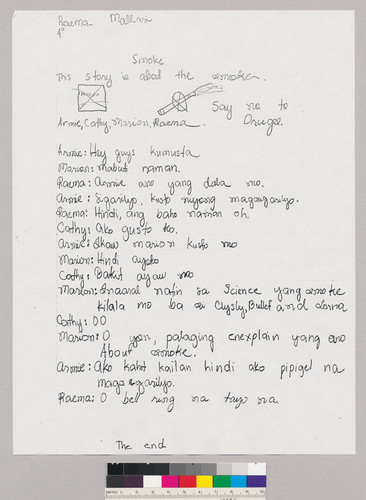 Raema Malhari
4°
Smoke
This story is about the smoke.
Say no to
Drugs.
Arnie, Cathy, Marion, Raema.
Arnie: Hey guys kumusta
Marion: mabuti naman.
Raema: Arnie ano yang dala mo.
Arnie: Sigarilyo, kusto niyong magsigarilyo.
Raema: Hindi, ang baho naman oh.
Cathy: Ako gusto ko.
Arnie: Ikaw marion kusto mo
Marion: Hindi ayoko
Cathy: Bakit ayaw mo
Marion: Inaaral natin sa Science yang smoke
kilala mo ba si Cysly, Bullet and
Cathy: OO
Marion: O yon, palaging enexplain yang ano
About smoke.
Arnie: Ako kahit kailan hindi ako pipigel na
mag sigarilyo.
Raema: O bell ring na tayo na.
The end